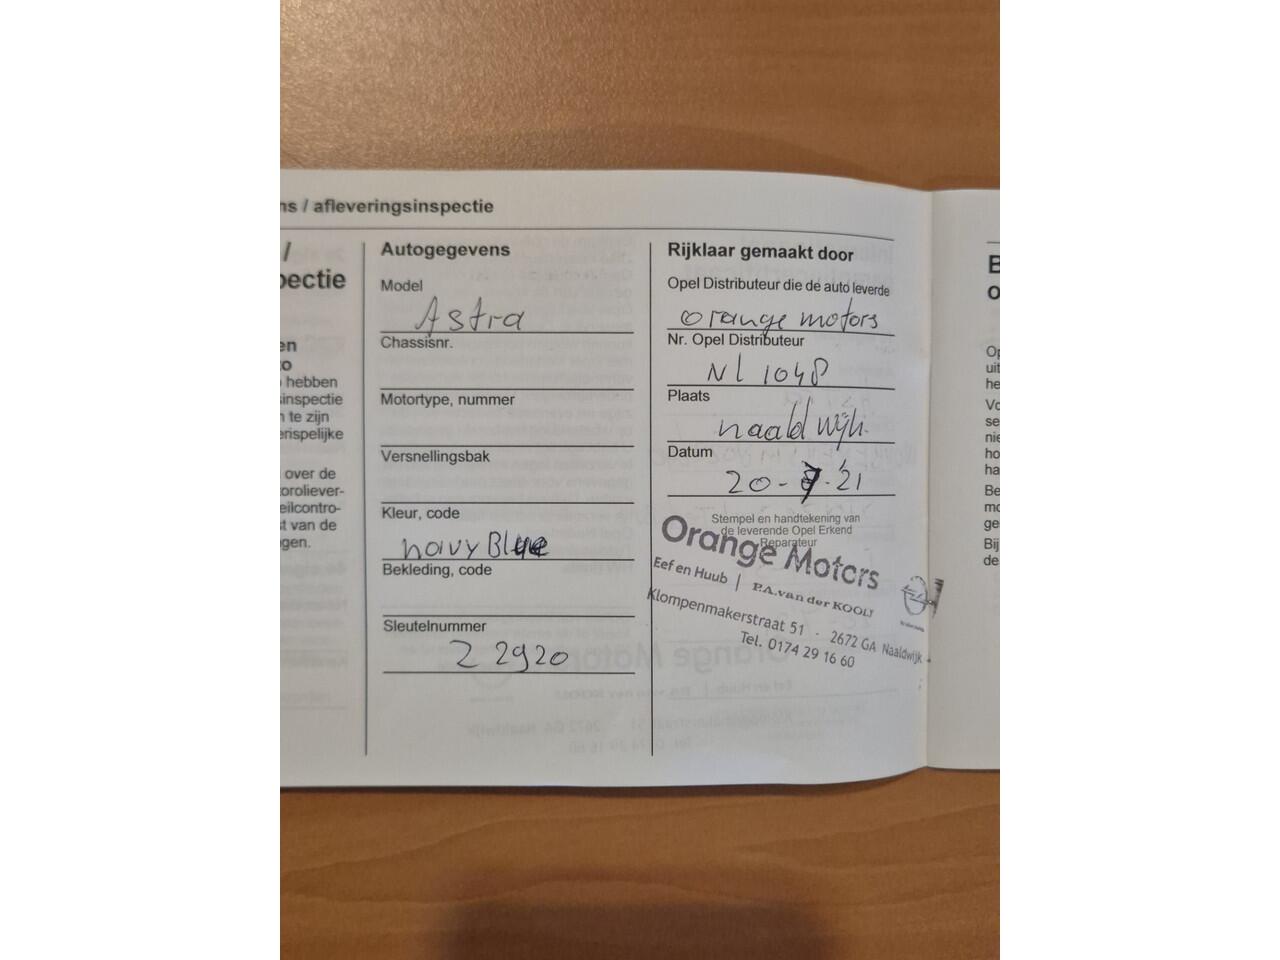 ns / afleveringsinspectie
/
pectie
en
to
hebben
inspectie
n te zijn
erispelijke
over de
oroliever-
eilcontro-
t van de
gen.
Autogegevens
Model
Astra
Chassisnr.
Motortype, nummer
Versnellingsbak
Kleur, code
navy Blue
Bekleding, code
Sleutelnummer
Z 2920
Rijklaar gemaakt door
Opel Distributeur die de auto leverde
orange motors
Nr. Opel Distributeur
NL 1048
Plaats
naaldwijk
Datum
20-7-'21
Stempel en handtekening van
de leverende Opel Erkend
Reparateur
Orange Motors
Eef en Huub | P.A. van der KOOIJ
Klompenmakerstraat 51 - 2672 GA Naaldwijk
Tel. 0174 29 16 60
B
o
Op
uit
he
Vo
se
nie
ho
ha
Be
mo
ge
Bij
de